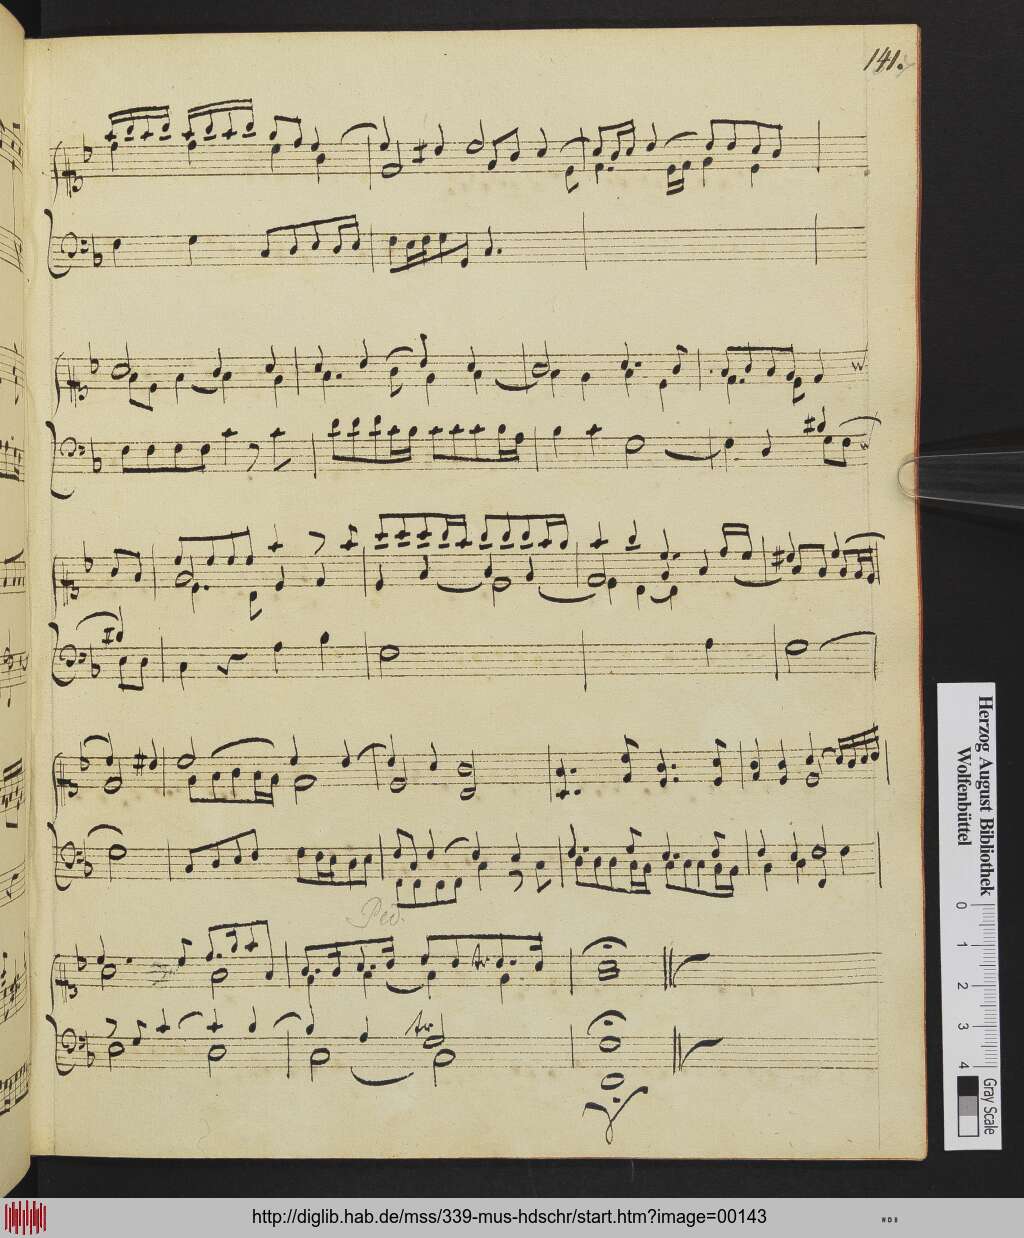 141.
Ped.
tr
tr
Herzog August Bibliothek
Wolfenbüttel
0 1 2 3 4
Gray Scale
http://diglib.hab.de/mss/339-mus-hdschr/start.htm?image=00143